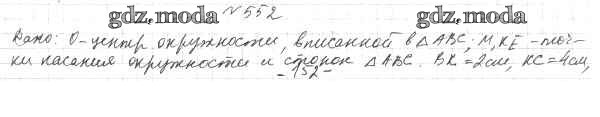 gdz.moda №552 gdz.moda
Дано: О-центр окружности, вписанной в △ABC; M,K,E - точ-
ки касания окружности и сторон △ABC. BK=2см, KC=4см,
-152-